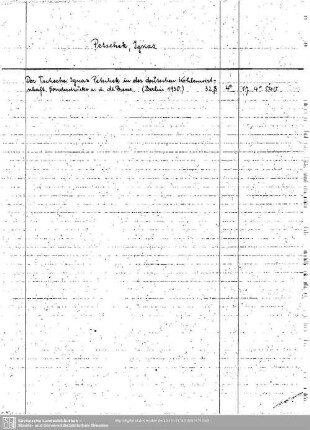 Petschek, Ignaz
Der Tscheche Ignaz Petschek in der deutschen Kohlenwirt-
schaft. Sonderdrucke a. d. dt. Presse. (Berlin 1938). 32 S. 4°
Sächsische Landesbibliothek -
Staats- und Universitätsbibliothek Dresden